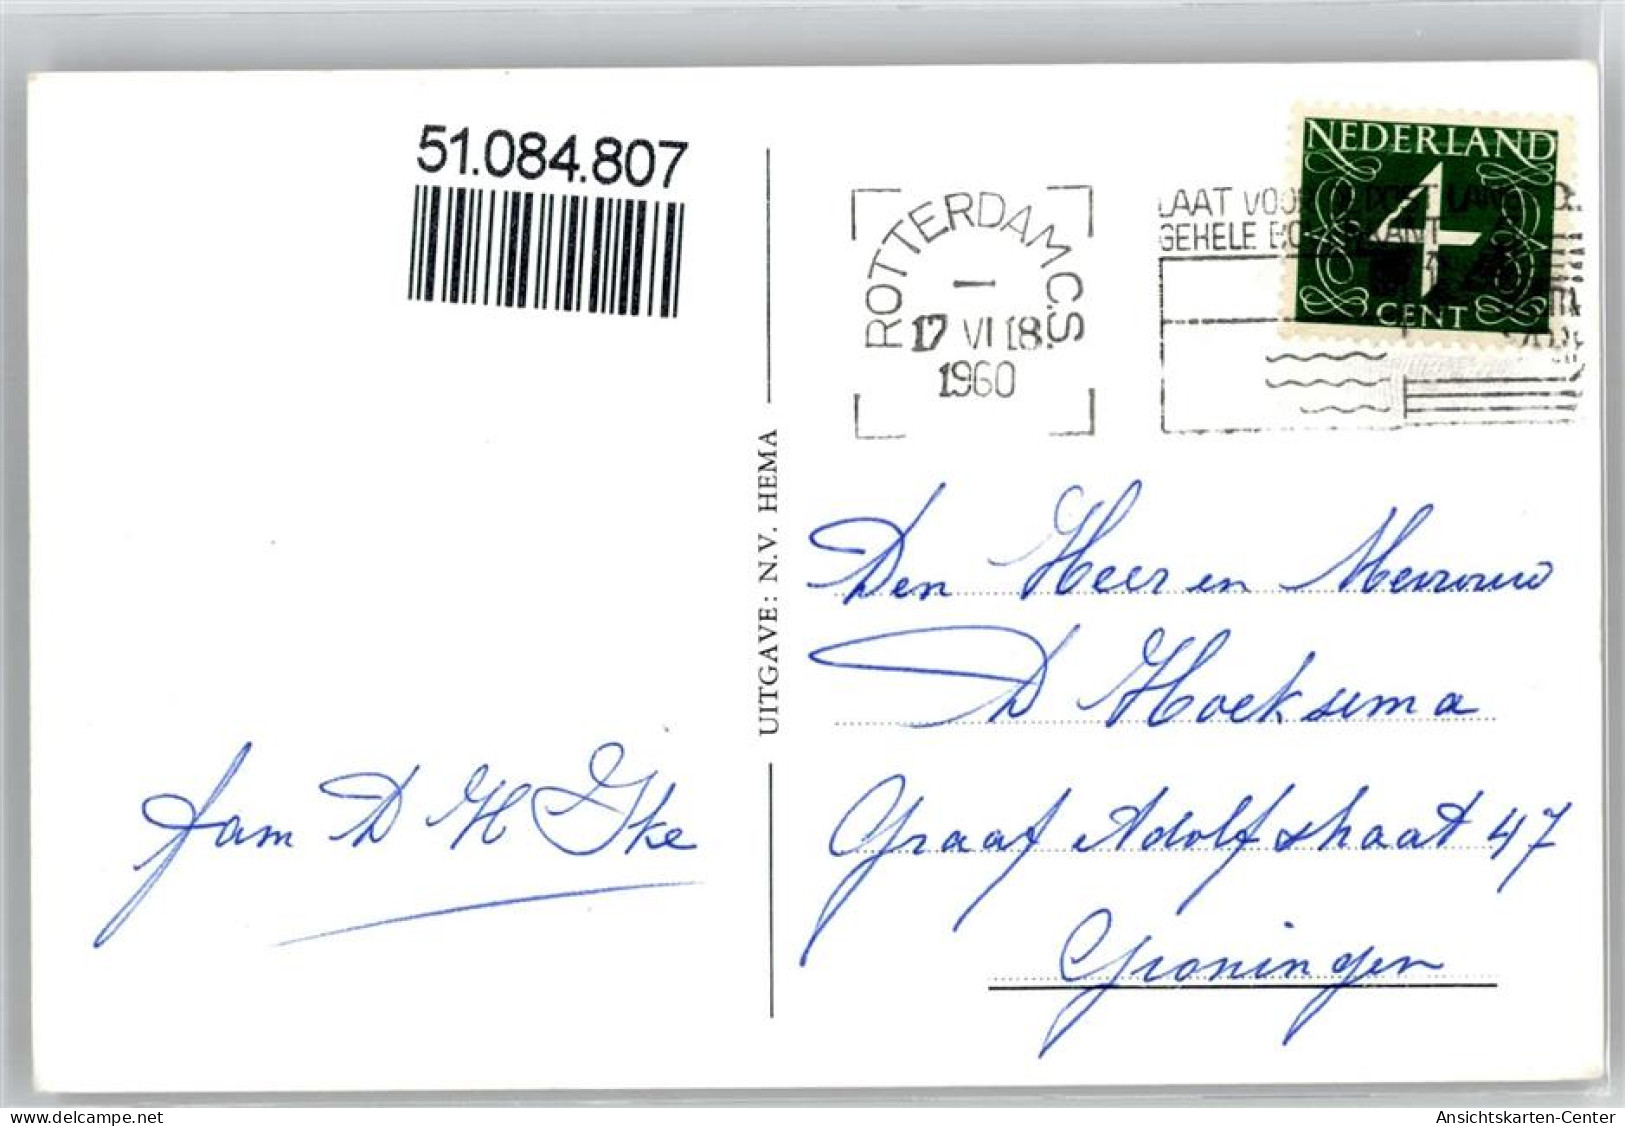 51.084.807
ROTTERDAM C.S
I
17 VI 18
1960
LAAT VOOR POST
GEHELE
NEDERLAND
4
CENT
UITGAVE: N.V. HEMA
Den Heer en Mevrouw
D Hoeksema
Graaf Adolfstraat 47
Groningen
Fam D H
delcampe.net
Ansichtskarten-Center